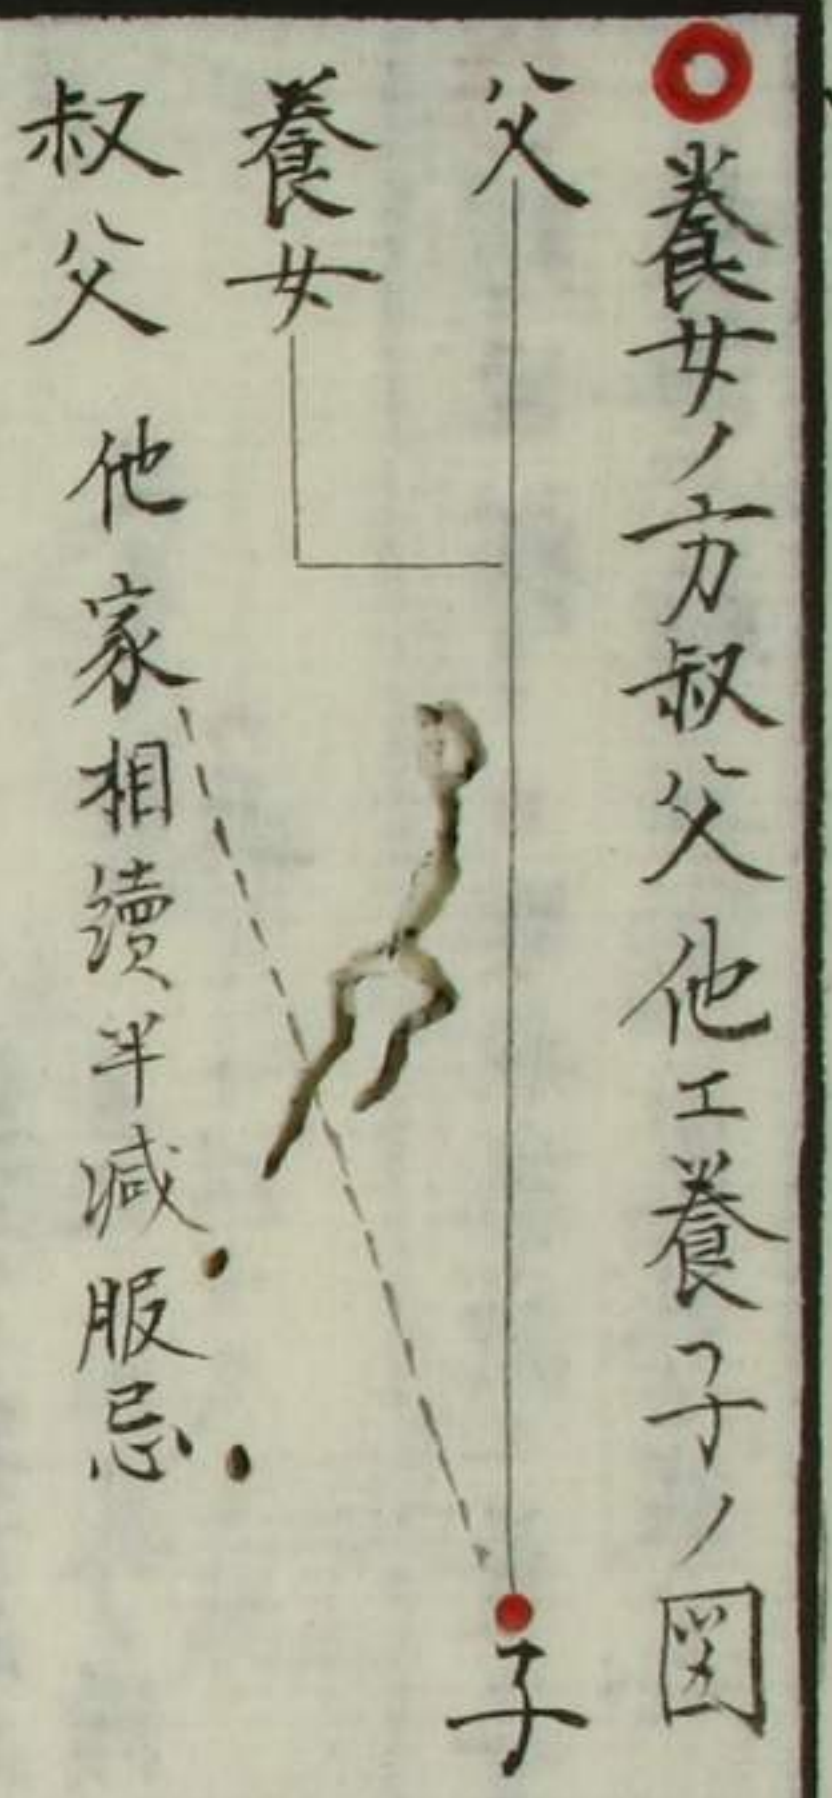 養女ノ方叔父他エ養子ノ図
父
子
養女
叔父
他家相續半減服忌